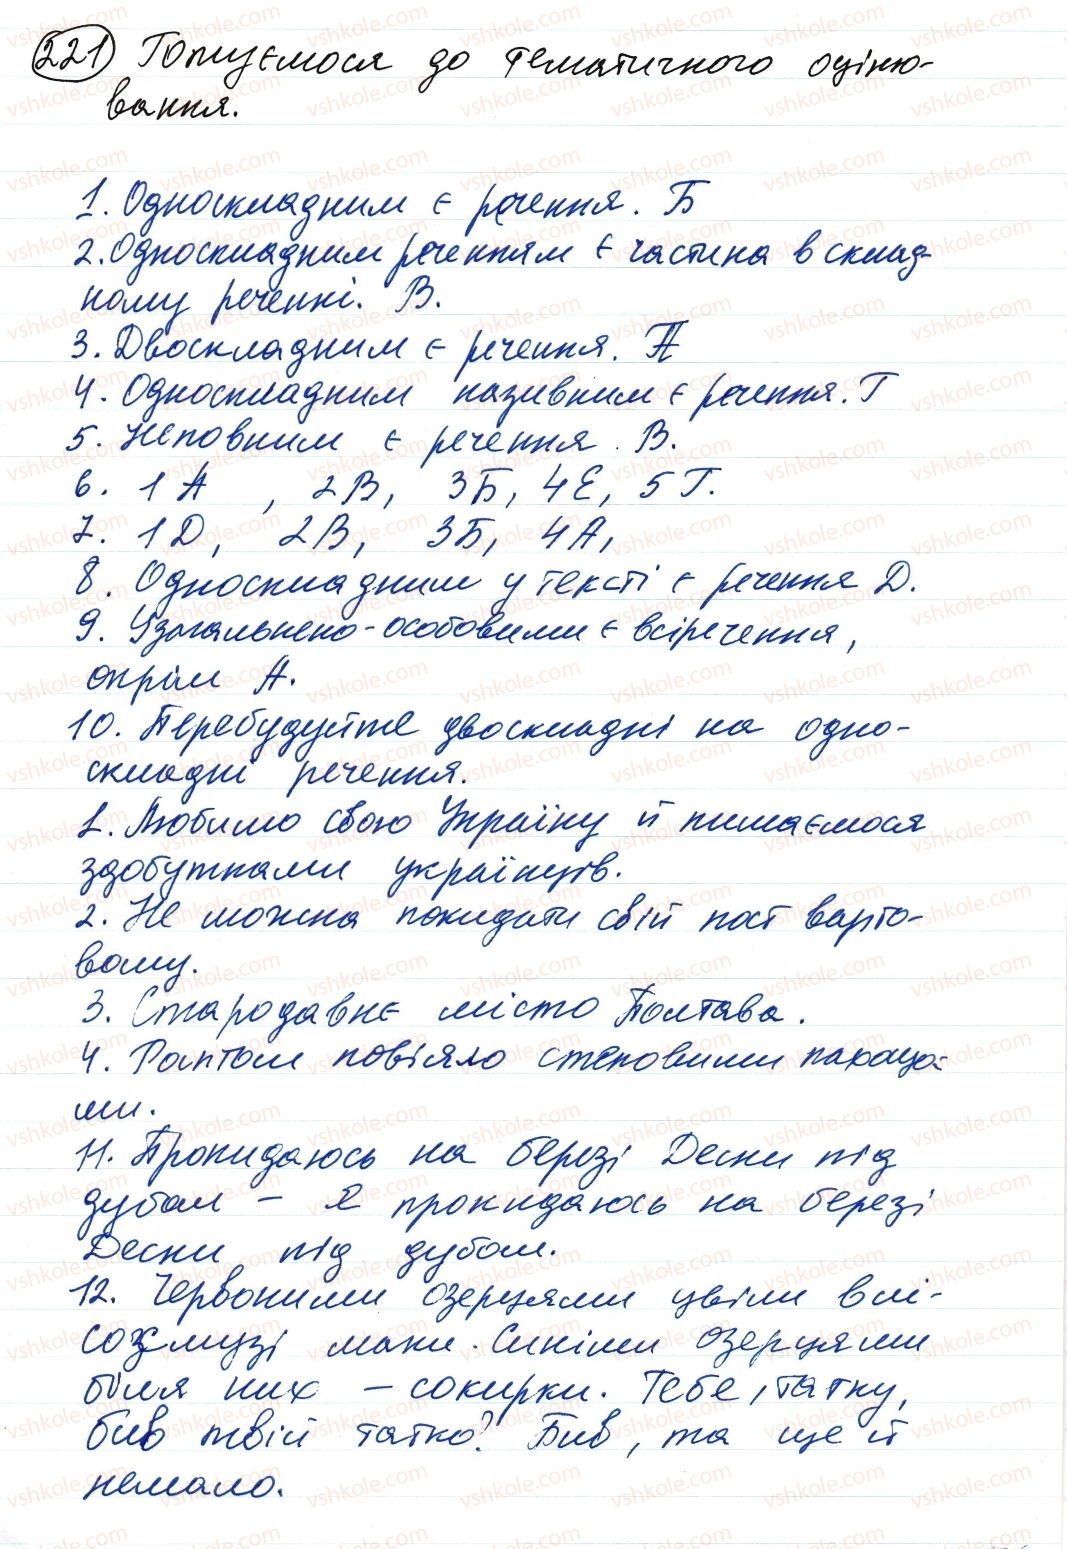 221 Готуємося до тематичного оціню-
вання.
1. Односкладним є речення. Б
2. Односкладним реченням є частина в склад-
ному реченні. В.
3. Двоскладним є речення. А
4. Односкладним називним є речення. Г
5. Неповним є речення. В.
6. 1А, 2В, 3Б, 4Е, 5Г.
7. 1D, 2В, 3Б, 4А,
8. Односкладним у тексті є речення Д.
9. Узагальнено-особовими є всі речення,
окрім А.
10. Перебудуйте двоскладні на одно-
складні речення.
1. Любимо свою Україну й пишаємося
здобутками українців.
2. Не можна покидати свій пост варто-
вому.
3. Стародавнє місто Полтава.
4. Раптом повіяло степовими пахоща-
ми.
11. Прокидаюсь на березі Десни під
дубом – Я прокидаюсь на березі
Десни під дубом.
12. Червоними озерцями цвіли в лі-
созмузі маки. Синіми озерцями
біля них – сокирки. Тебе, татку,
бив твій татко? Бив, та ще й
немало.
vshkole.com